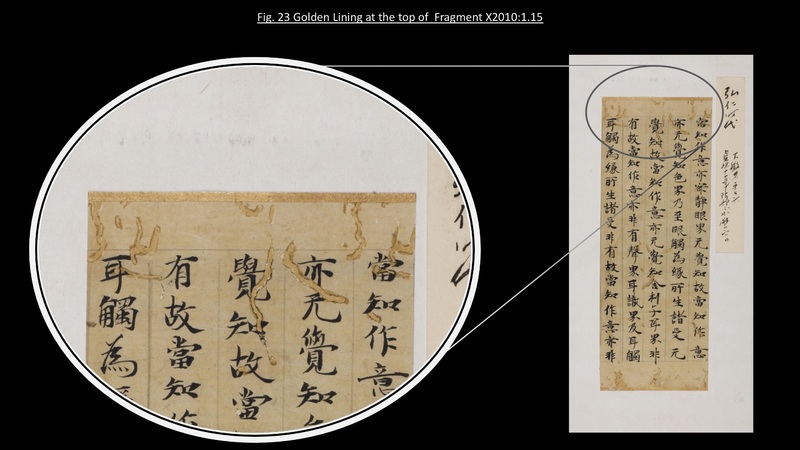 Fig. 23 Golden Lining at the top of Fragment X2010:1.15
當知作意
亦无覺知
覺知故當
有故當知作
耳觸為
當知作意亦寂靜眼界无覺知故當知作意
亦无覺知色界乃至眼觸為緣所生諸受无
覺知故當知作意亦无覺知舍利子耳界非
有故當知作意亦非有聲界耳識界及耳觸
耳觸為緣所生諸受非有故當知作意亦非
弘仁時代